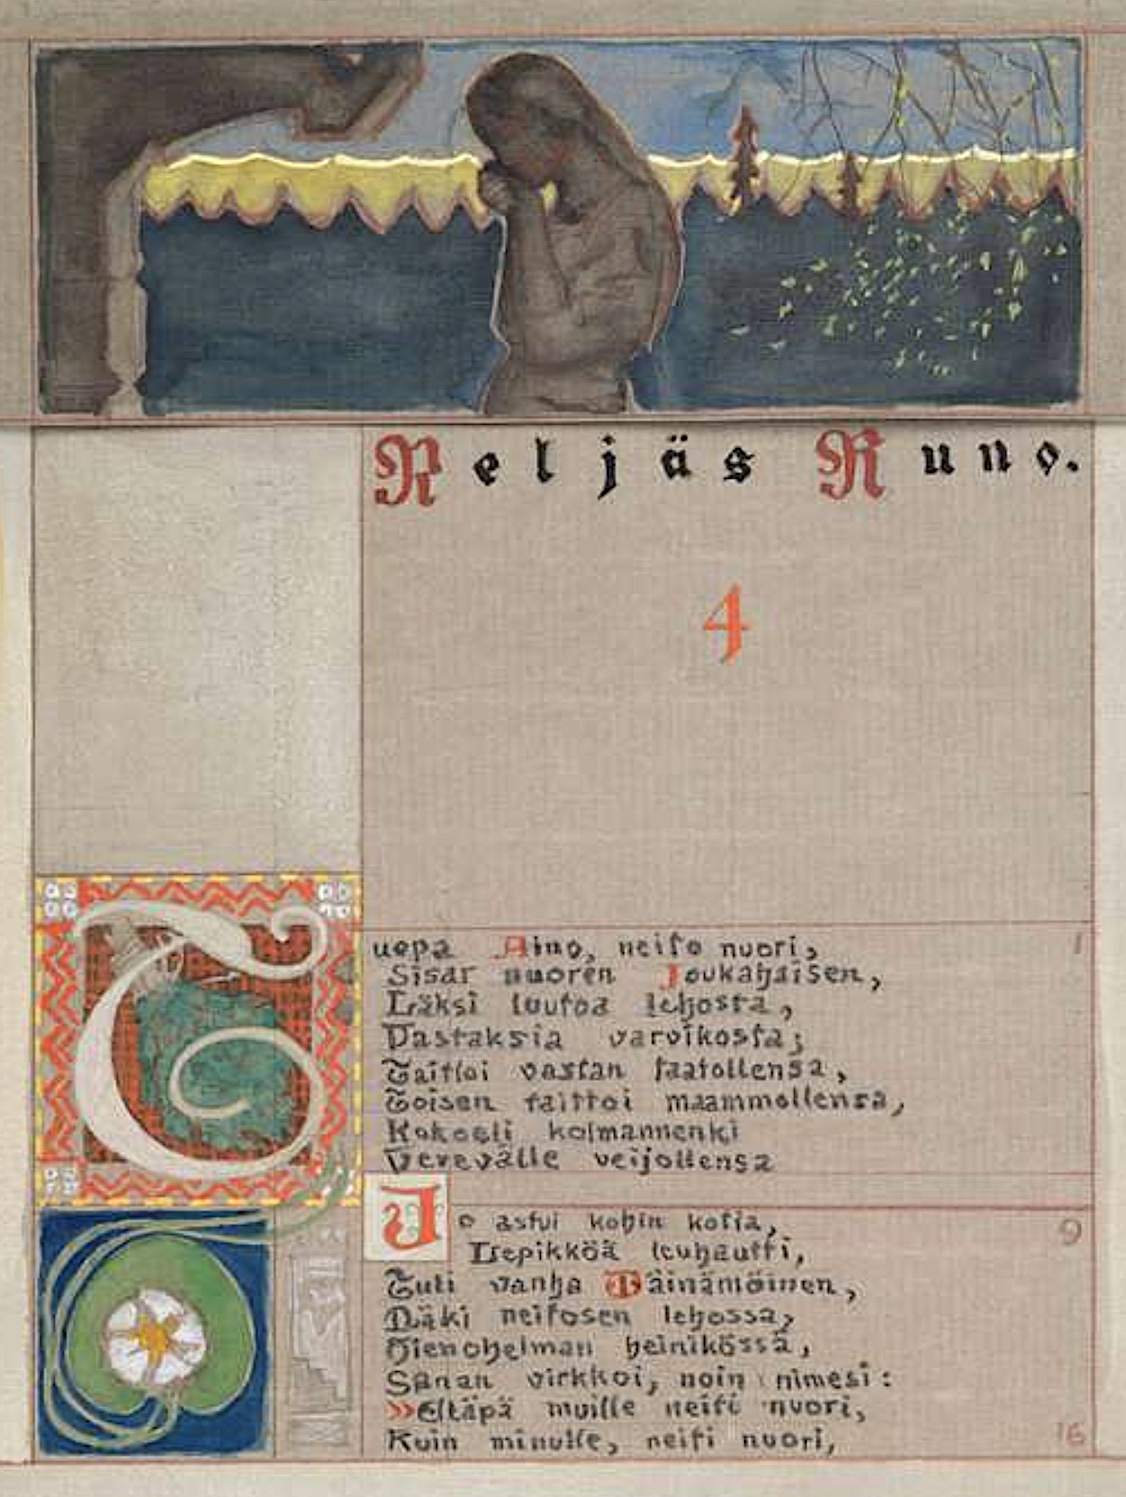 Neljäs Runo.
4
Tuopa Aino, neito nuori, 1
Sisar nuoren Joukahaisen,
Läksi luutoa lehosta,
Vastaksia varvikosta;
Taittoi vastan taatollensa,
Toisen taittoi maammollensa,
Kokoeli kolmannenki
Verevälle veijollensa
Jo astui kohin kotia, 9
Lepikköä leuhautti,
Tuli vanha Wäinämöinen,
Näki neitosen lehossa,
Hienohelman heinikössä,
Sanan virkkoi, noin nimesi:
»Eläpä muille neiti nuori,
Kuin minulle, neiti nuori, 16